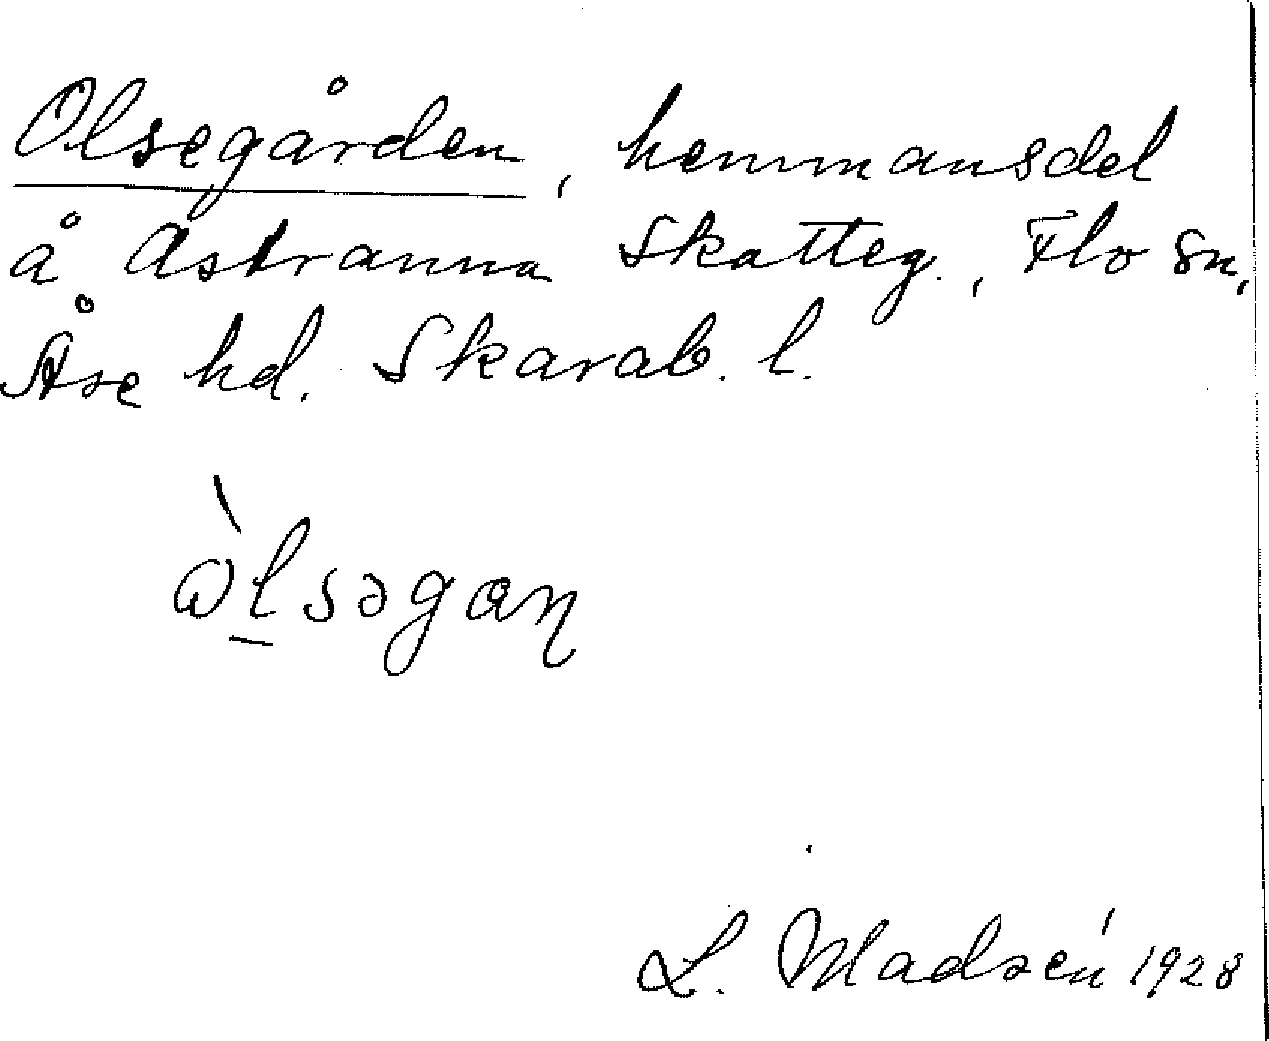 Olsegården, hemmansdel
å Åstranna Skatteg., Flo sn,
Åse hd. Skarab. l.
ὼlsəgaɳ
L. Madsén 1928